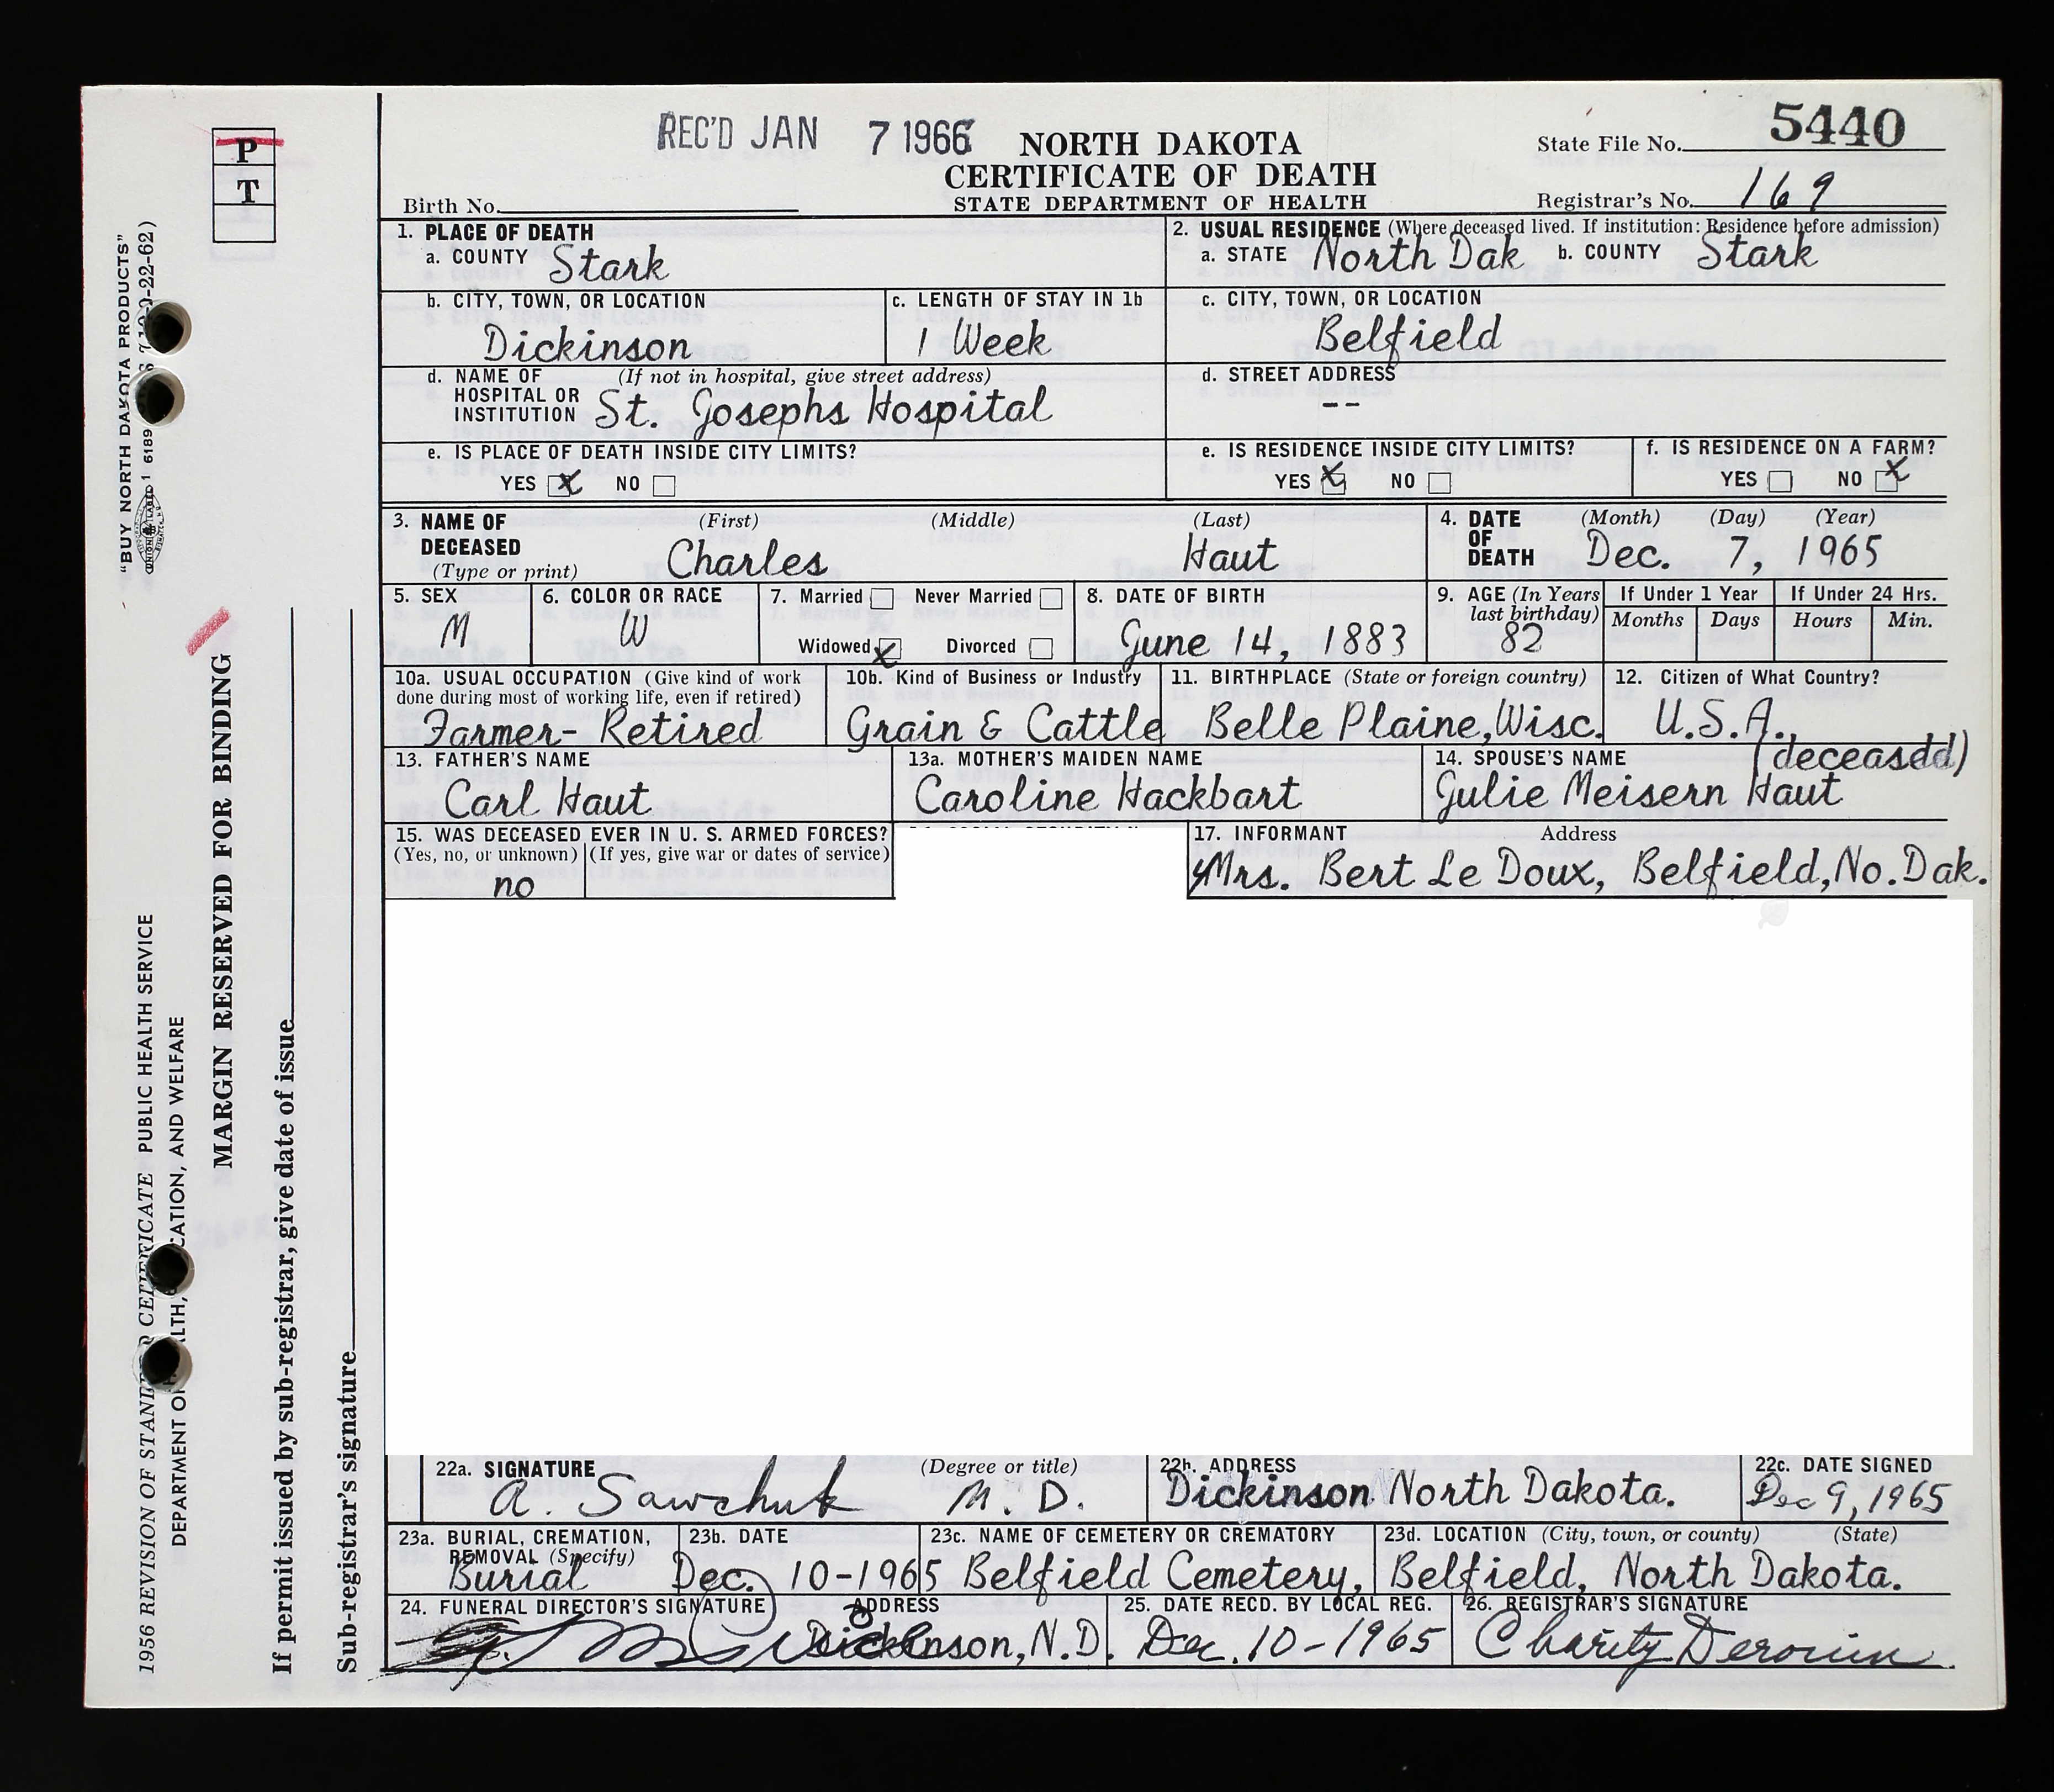 REC'D JAN 7 1966
NORTH DAKOTA
CERTIFICATE OF DEATH
STATE DEPARTMENT OF HEALTH
State File No. 5440
Registrar's No. 169
Birth No.
P
T
1. PLACE OF DEATH
a. COUNTY Stark
2. USUAL RESIDENCE (Where deceased lived. If institution: Residence before admission)
a. STATE North Dak b. COUNTY Stark
b. CITY, TOWN, OR LOCATION
Dickinson
c. LENGTH OF STAY IN 1b
1 Week
c. CITY, TOWN, OR LOCATION
Belfield
d. NAME OF (If not in hospital, give street address)
HOSPITAL OR
INSTITUTION St. Josephs Hospital
d. STREET ADDRESS
--
e. IS PLACE OF DEATH INSIDE CITY LIMITS?
YES X NO
e. IS RESIDENCE INSIDE CITY LIMITS?
YES X NO
f. IS RESIDENCE ON A FARM?
YES NO X
3. NAME OF (First) (Middle) (Last)
DECEASED
(Type or print) Charles Haut
4. DATE (Month) (Day) (Year)
OF
DEATH Dec. 7, 1965
5. SEX
M
6. COLOR OR RACE
W
7. Married Never Married
Widowed X Divorced
8. DATE OF BIRTH
June 14, 1883
9. AGE (In Years
last birthday)
82
If Under 1 Year
Months Days
If Under 24 Hrs.
Hours Min.
10a. USUAL OCCUPATION (Give kind of work
done during most of working life, even if retired)
Farmer- Retired
10b. Kind of Business or Industry
Grain & Cattle
11. BIRTHPLACE (State or foreign country)
Belle Plaine, Wisc.
12. Citizen of What Country?
U.S.A.
13. FATHER'S NAME
Carl Haut
13a. MOTHER'S MAIDEN NAME
Caroline Hackbart
14. SPOUSE'S NAME (deceasdd)
Julie Meisern Haut
15. WAS DECEASED EVER IN U. S. ARMED FORCES?
(Yes, no, or unknown) (If yes, give war or dates of service)
no
17. INFORMANT Address
Mrs. Bert Le Doux, Belfield, No. Dak.
22a. SIGNATURE (Degree or title)
A. Sawchuk M. D.
22b. ADDRESS
Dickinson North Dakota.
22c. DATE SIGNED
Dec 9, 1965
23a. BURIAL, CREMATION,
REMOVAL (Specify)
Burial
23b. DATE
Dec. 10-1965
23c. NAME OF CEMETERY OR CREMATORY
Belfield Cemetery,
23d. LOCATION (City, town, or county) (State)
Belfield, North Dakota.
24. FUNERAL DIRECTOR'S SIGNATURE ADDRESS
Dickinson, N.D.
25. DATE RECD. BY LOCAL REG.
Dec. 10-1965
26. REGISTRAR'S SIGNATURE
Charity Derouin
"BUY NORTH DAKOTA PRODUCTS"
1956 REVISION OF STANDARD CERTIFICATE PUBLIC HEALTH SERVICE
DEPARTMENT OF HEALTH, EDUCATION, AND WELFARE
MARGIN RESERVED FOR BINDING
If permit issued by sub-registrar, give date of issue
Sub-registrar's signature